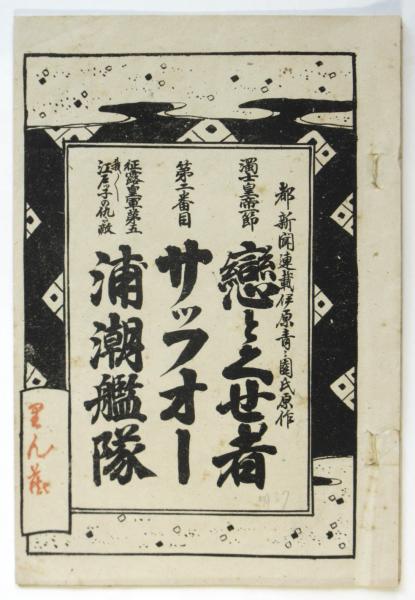 都新聞連載伊原青々園氏原作
濁士皇帝一節
戀とくせ者
第二番目
サッフオー
征露皇軍第五
江戸ッ子の仇敵
浦潮艦隊